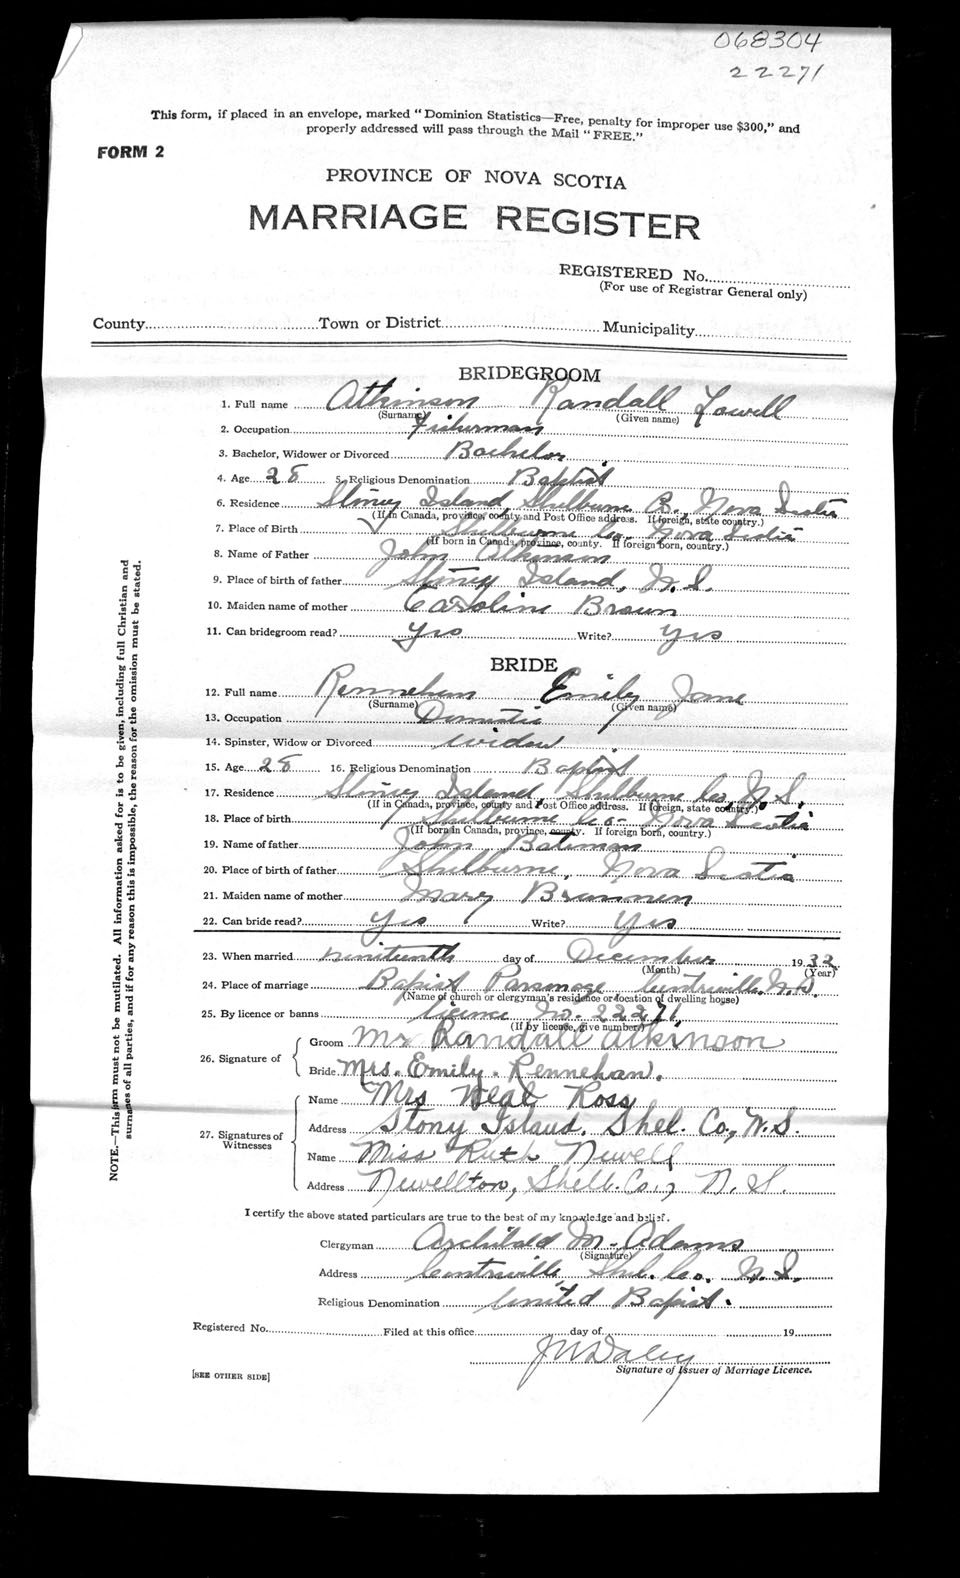 068304
22271
This form, if placed in an envelope, marked "Dominion Statistics—Free, penalty for improper use $300," and
properly addressed will pass through the Mail "FREE."
FORM 2
PROVINCE OF NOVA SCOTIA
MARRIAGE REGISTER
REGISTERED No.
(For use of Registrar General only)
County Town or District Municipality
BRIDEGROOM
1. Full name Atkinson Randall Lowell
(Surname) (Given name)
2. Occupation Fisherman
3. Bachelor, Widower or Divorced Bachelor
4. Age 28 5. Religious Denomination Baptist
6. Residence Stoney Island Shelburne Nova Scotia
(If in Canada, province, county and Post Office address. If foreign, state country.)
7. Place of Birth Shelburne Co. Nova Scotia
(If born in Canada, province, county. If foreign born, country.)
8. Name of Father John Atkinson
9. Place of birth of father Stoney Island, N.S.
10. Maiden name of mother Caroline Brown
11. Can bridegroom read? Yes Write? Yes
BRIDE
12. Full name Rennehan Emily Jane
(Surname) (Given name)
13. Occupation Domestic
14. Spinster, Widow or Divorced widow
15. Age 28 16. Religious Denomination Baptist
17. Residence Stoney Island, Shelburne Co, N.S.
(If in Canada, province, county and Post Office address. If foreign, state country.)
18. Place of birth Shelburne Co- Nova Scotia
(If born in Canada, province, county. If foreign born, country.)
19. Name of father John Bateman
20. Place of birth of father Shelburne, Nova Scotia
21. Maiden name of mother Mary Brannen
22. Can bride read? Yes Write? Yes
23. When married nineteenth day of December 1932
(Month) (Year)
24. Place of marriage Baptist Parsonage Centreville, N.S.
(Name of church or clergyman's residence or location of dwelling house)
25. By licence or banns licence No. 22271
(If by licence, give number)
26. Signature of
Groom Mr Randall Atkinson
Bride Mrs. Emily. Rennehan.
27. Signatures of Witnesses
Name Mrs Neal Ross
Address Stony Island, Shel. Co, N.S.
Name Miss Ruth Newell
Address Newellton, Shell. Co., N.S.
I certify the above stated particulars are true to the best of my knowledge and belief.
Clergyman Archibald M. Adams
(Signature)
Address Centreville, Shel. Co. N.S.
Religious Denomination United Baptist.
Registered No. Filed at this office day of 19
Daley
Signature of Issuer of Marriage Licence.
[SEE OTHER SIDE]
NOTE.—This form must not be mutilated. All information asked for is to be given, including full Christian and
surnames of all parties, and if for any reason this is impossible, the reason for the omission must be stated.